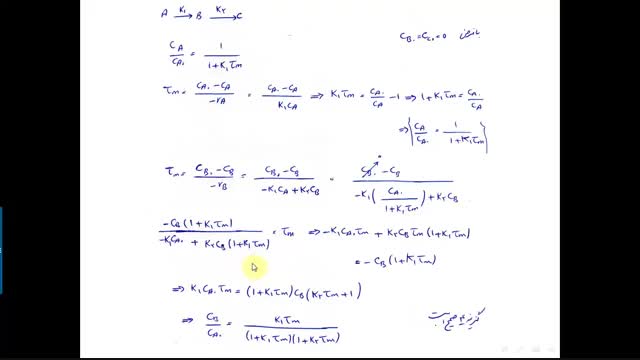 A →K₁ B →K₂ C
با فرض C_B۰ = C_C۰ = 0
C_A / C_A۰ = 1 / (1+K₁τm)
τm = (C_A۰ - C_A) / -r_A = (C_A۰ - C_A) / K₁C_A ⇒ K₁τm = C_A۰/C_A - 1 ⇒ 1+K₁τm = C_A۰/C_A
⇒ { C_A/C_A۰ = 1/(1+K₁τm) }
τm = (C_B۰ - C_B) / -r_B = (C_B۰ - C_B) / (-K₁C_A + K₂C_B) = (C_B۰ - C_B) / (-K₁(C_A۰/(1+K₁τm)) + K₂C_B)
-C_B(1+K₁τm) / (-K₁C_A۰ + K₂C_B(1+K₁τm)) = τm ⇒ -K₁C_A۰τm + K₂C_Bτm(1+K₁τm)
= -C_B(1+K₁τm)
⇒ K₁C_A۰τm = (1+K₁τm)C_B(K₂τm+1)
⇒ C_B/C_A۰ = K₁τm / (1+K₁τm)(1+K₂τm)
گزینه صحیح است